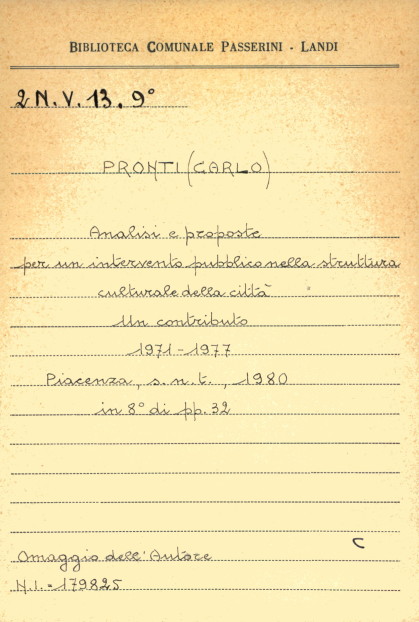 BIBLIOTECA COMUNALE PASSERINI - LANDI
2 N. V. 13. 9°
PRONTI (CARLO)
Analisi e proposte
per un intervento pubblico nella struttura
culturale della città
Un contributo
1971-1977
Piacenza, s. n. t., 1980
in 8° di pp. 32
C
Omaggio dell'Autore
N.I. = 179825